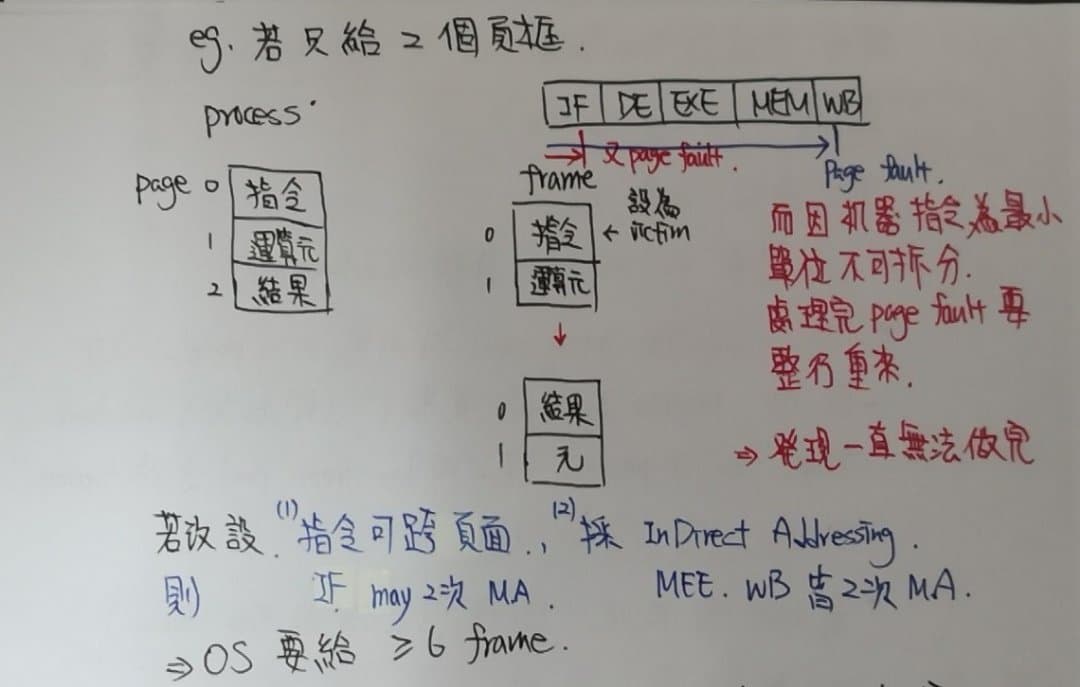 eg. 若只給 2 個頁框.
process
IF DE EXE MEM WB
又 page fault.
Page fault.
page 0 指令
1 運算元
2 結果
frame
0 指令 ← 設為 victim
1 運算元
↓
0 結果
1 元
而因机器指令為最小
單位不可拆分.
處理完 page fault 要
整行重來.
⇒ 発現一直無法做完
若改設 (1) 指令可跨頁面., (2) 採 InDirect Addressing.
則 IF may 2次 MA. MEE. WB 皆2次 MA.
⇒ OS 要給 ≥ 6 frame.